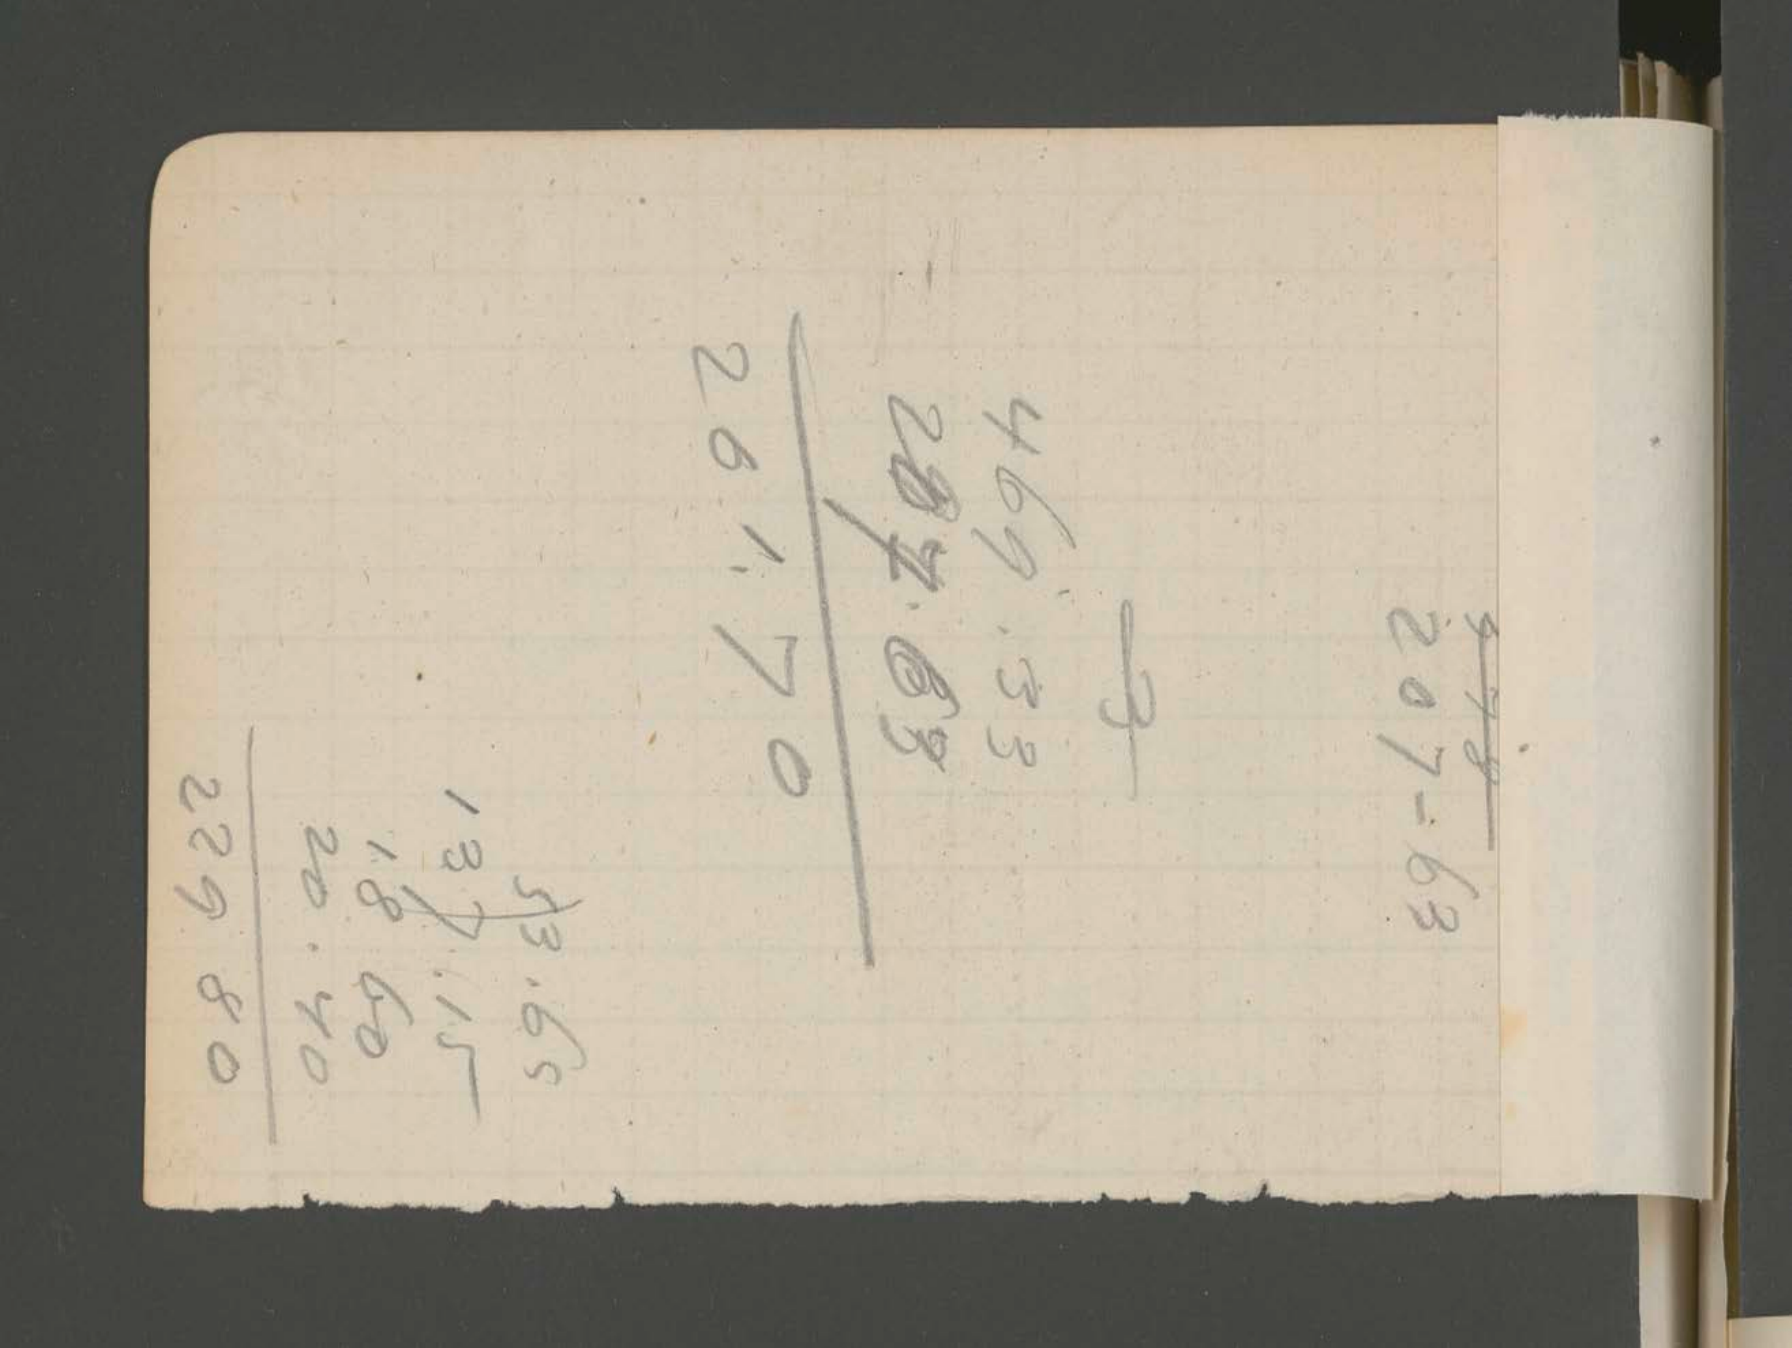 207-63
3
469.33
207.63
261.70
53.65
137.15
18 60
20.40
229 80